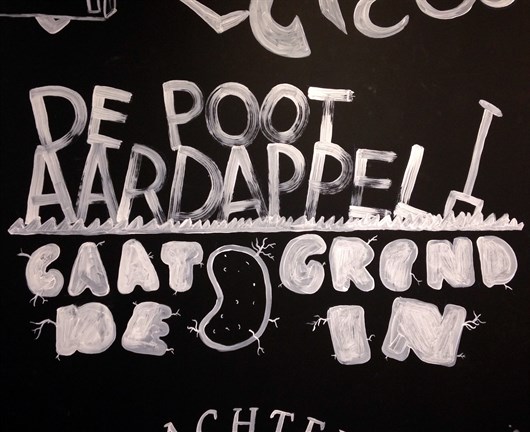 DE POOT
AARDAPPEL
GAAT GROND
DE IN